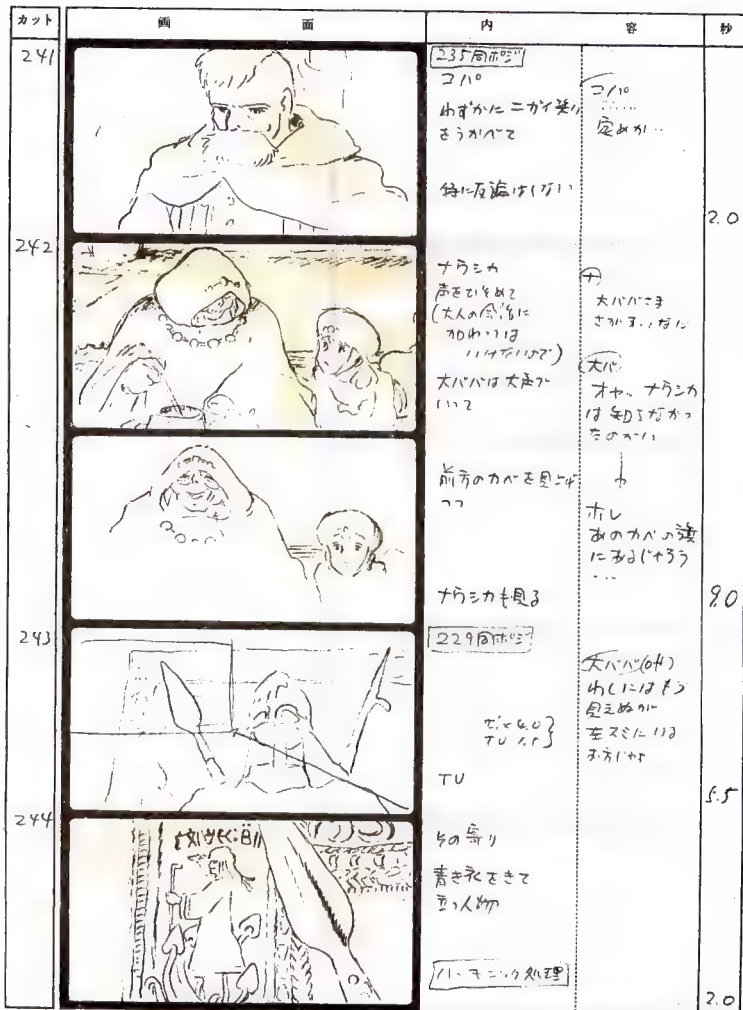 カット
画面
内容
秒
241
235同ポジ
ユパ
わずかにニガイ笑い
をうかべて
特に反論はしない
ユパ
……
2.0
242
ナウシカ
声をひそめて
(大人の会話に
加わっては
いけないので)
大ババは大声で
いって
前方のカベを見上げ
つつ
ナウシカも見る
ナ
大ババさま
さがすいなに
大ババ
オヤ、ナウシカ
は知らなかっ
たのかい
ホレ
あのカベの旗
にあるじゃろう
…
9.0
243
229同ポジ
TU
大ババ(off)
わしにはもう
見えぬが
左スミにいる
お方じゃよ
5.5
244
その寄り
青き衣をきて
立つ人物
ハーモニック処理
2.0